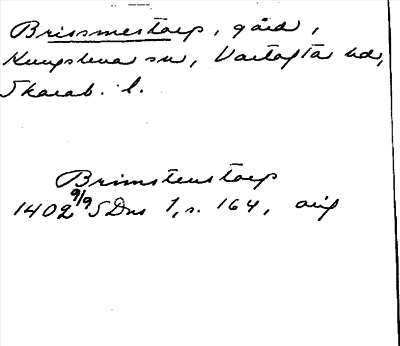 Brissmestorp, gård,
Kungslena sn, Vartofta hd,
Skarab. l.
Brimstenstorp
1402 9/9 SDns 1, s. 164, orig